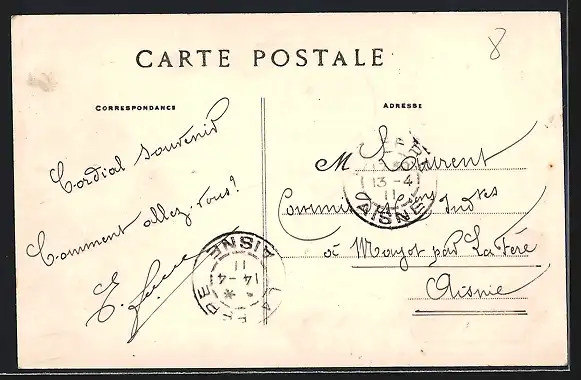 8
CARTE POSTALE
CORRESPONDANCE
ADRESSE
Cordial souvenir
Comment allez-vous?
M Laurent
Commis Contions Indtes
à Mayot par La Fère
Aisne
13-4
11
AISNE
LA FERE
14-4
11
AISNE